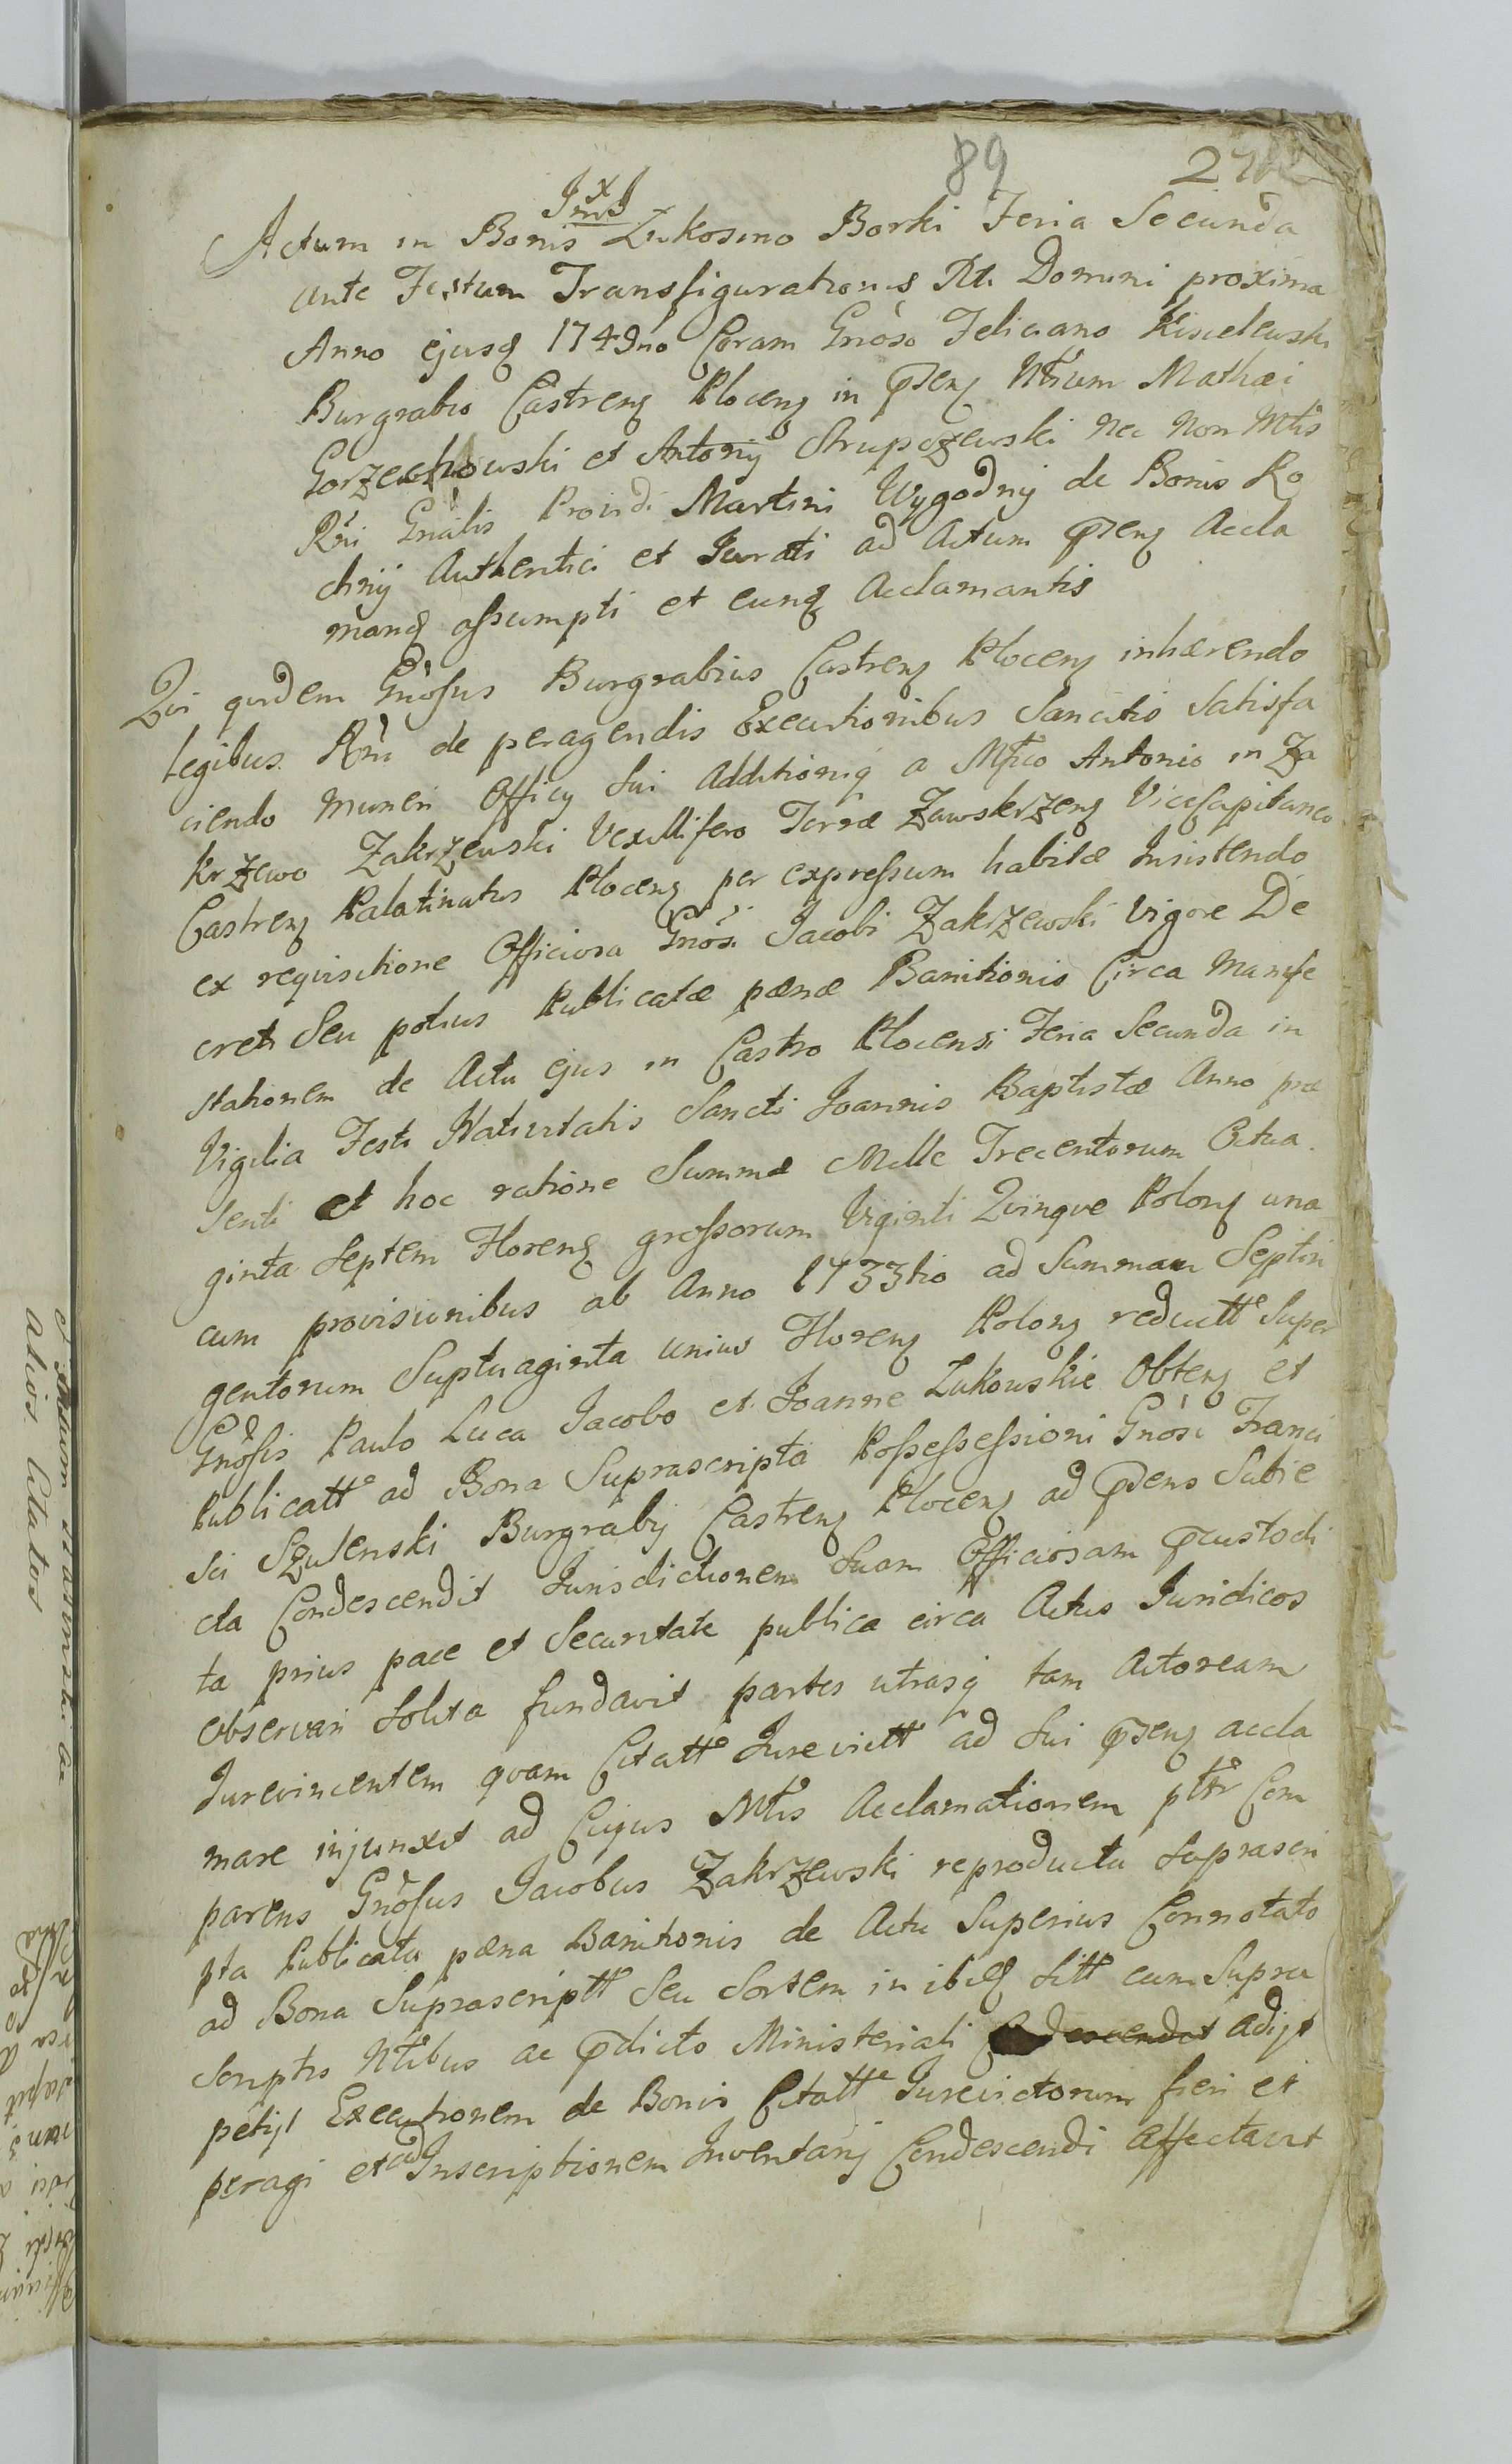 89
Actum in Bonis Żukowo Borki Feria Secunda
ante Festum Transfigurationis Xti Domini proxima
Anno ejusq 1749no Coram Gnoso Feliciano Kisielewski
Burgrabio Castrens Plocens in Psens Nblium Mathæi
Gorzechowski et Antonij Strupczewski nec non Mtis
Rni Gnalis Providi Martini Wygodny de Bonis Ro
chnij Authentici et Jurati ad Actum Psens Accla
mand assumpti et eund Acclamantis
Qui quidem Gnosus Burgrabius Castrens Plocens inhærendo
legibus Rni de peragendis Executionibus Sancitis Satisfa
ciendo Muneri Officij Sui Additioniq a Mfico Antonio in Za
krzewo Zakrzewski Vexillifero Terræ Zawskrzens ViceCapitaneo
Castrens Palatinatus Plocens per expressum habitæ Insistendo
ex requisitione Officiosa Gnosi Jacobi Zakrzewski Vigore De
creti Seu potius Publicatæ pænæ Banitionis Circa Manife
stationem de Actu ejus in Castro Plocensi Feria Secunda in
Vigilia Festi Nativitatis Sancti Joannis Baptistæ Anno præ
senti et hoc ratione Summæ Mille Trecentorum Octua
ginta Septem Florens grossorum Viginti Quinque Polons una
cum provisionibus ab Anno 1733tio ad Summam Septin
gentorum Suptuaginta unius Florens Polons reductt Super
Gnosis Paulo Luca Jacobo et Joanne Żukowskie Obtens et
Publicatt ad Bona Suprascripta Possessessioni Gnosi Franci
sci Szulenski Burgrabij Castrens Plocens ad Psens Subie
cta Condescendit Jurisdictionem Suam Officiosam Pcustodi
ta prius pace et Securitate publica circa Actus Juridicos
Observari Solita fundavit partes utrasq tam Actoream
Jurevincentem qvam Citatt Jurevictt ad Sui Psens accla
mare injunxit ad Cujus Mtis Acclamationem pttr Com
parens Gnosus Jacobus Zakrzewski reproducta Suprascri
pta Publicata pæna Banitionis de Actu Superius Connotato
ad Bona Suprascriptt Seu Sortem in ibid Sitt cum Supra
scriptis Ntibus ac Pdicto Ministeriali adijt
petijt Executionem de Bonis Citatt Jurevictorum fieri et
peragi et ad Inscriptionem Inventarij Condescendi Affectavit